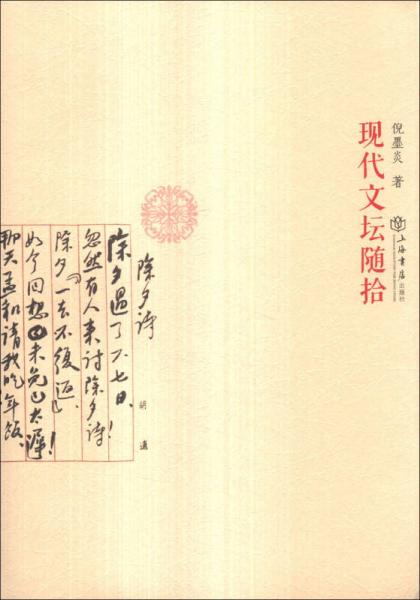 倪墨炎 著
现代文坛随拾
上海書店出版社
除夕诗
胡適
除夕過了六七日、
忽然有人来討除夕诗!
除夕「一去不復返」、
如今回想未免已太遲!
那天孟和請我吃年飯、